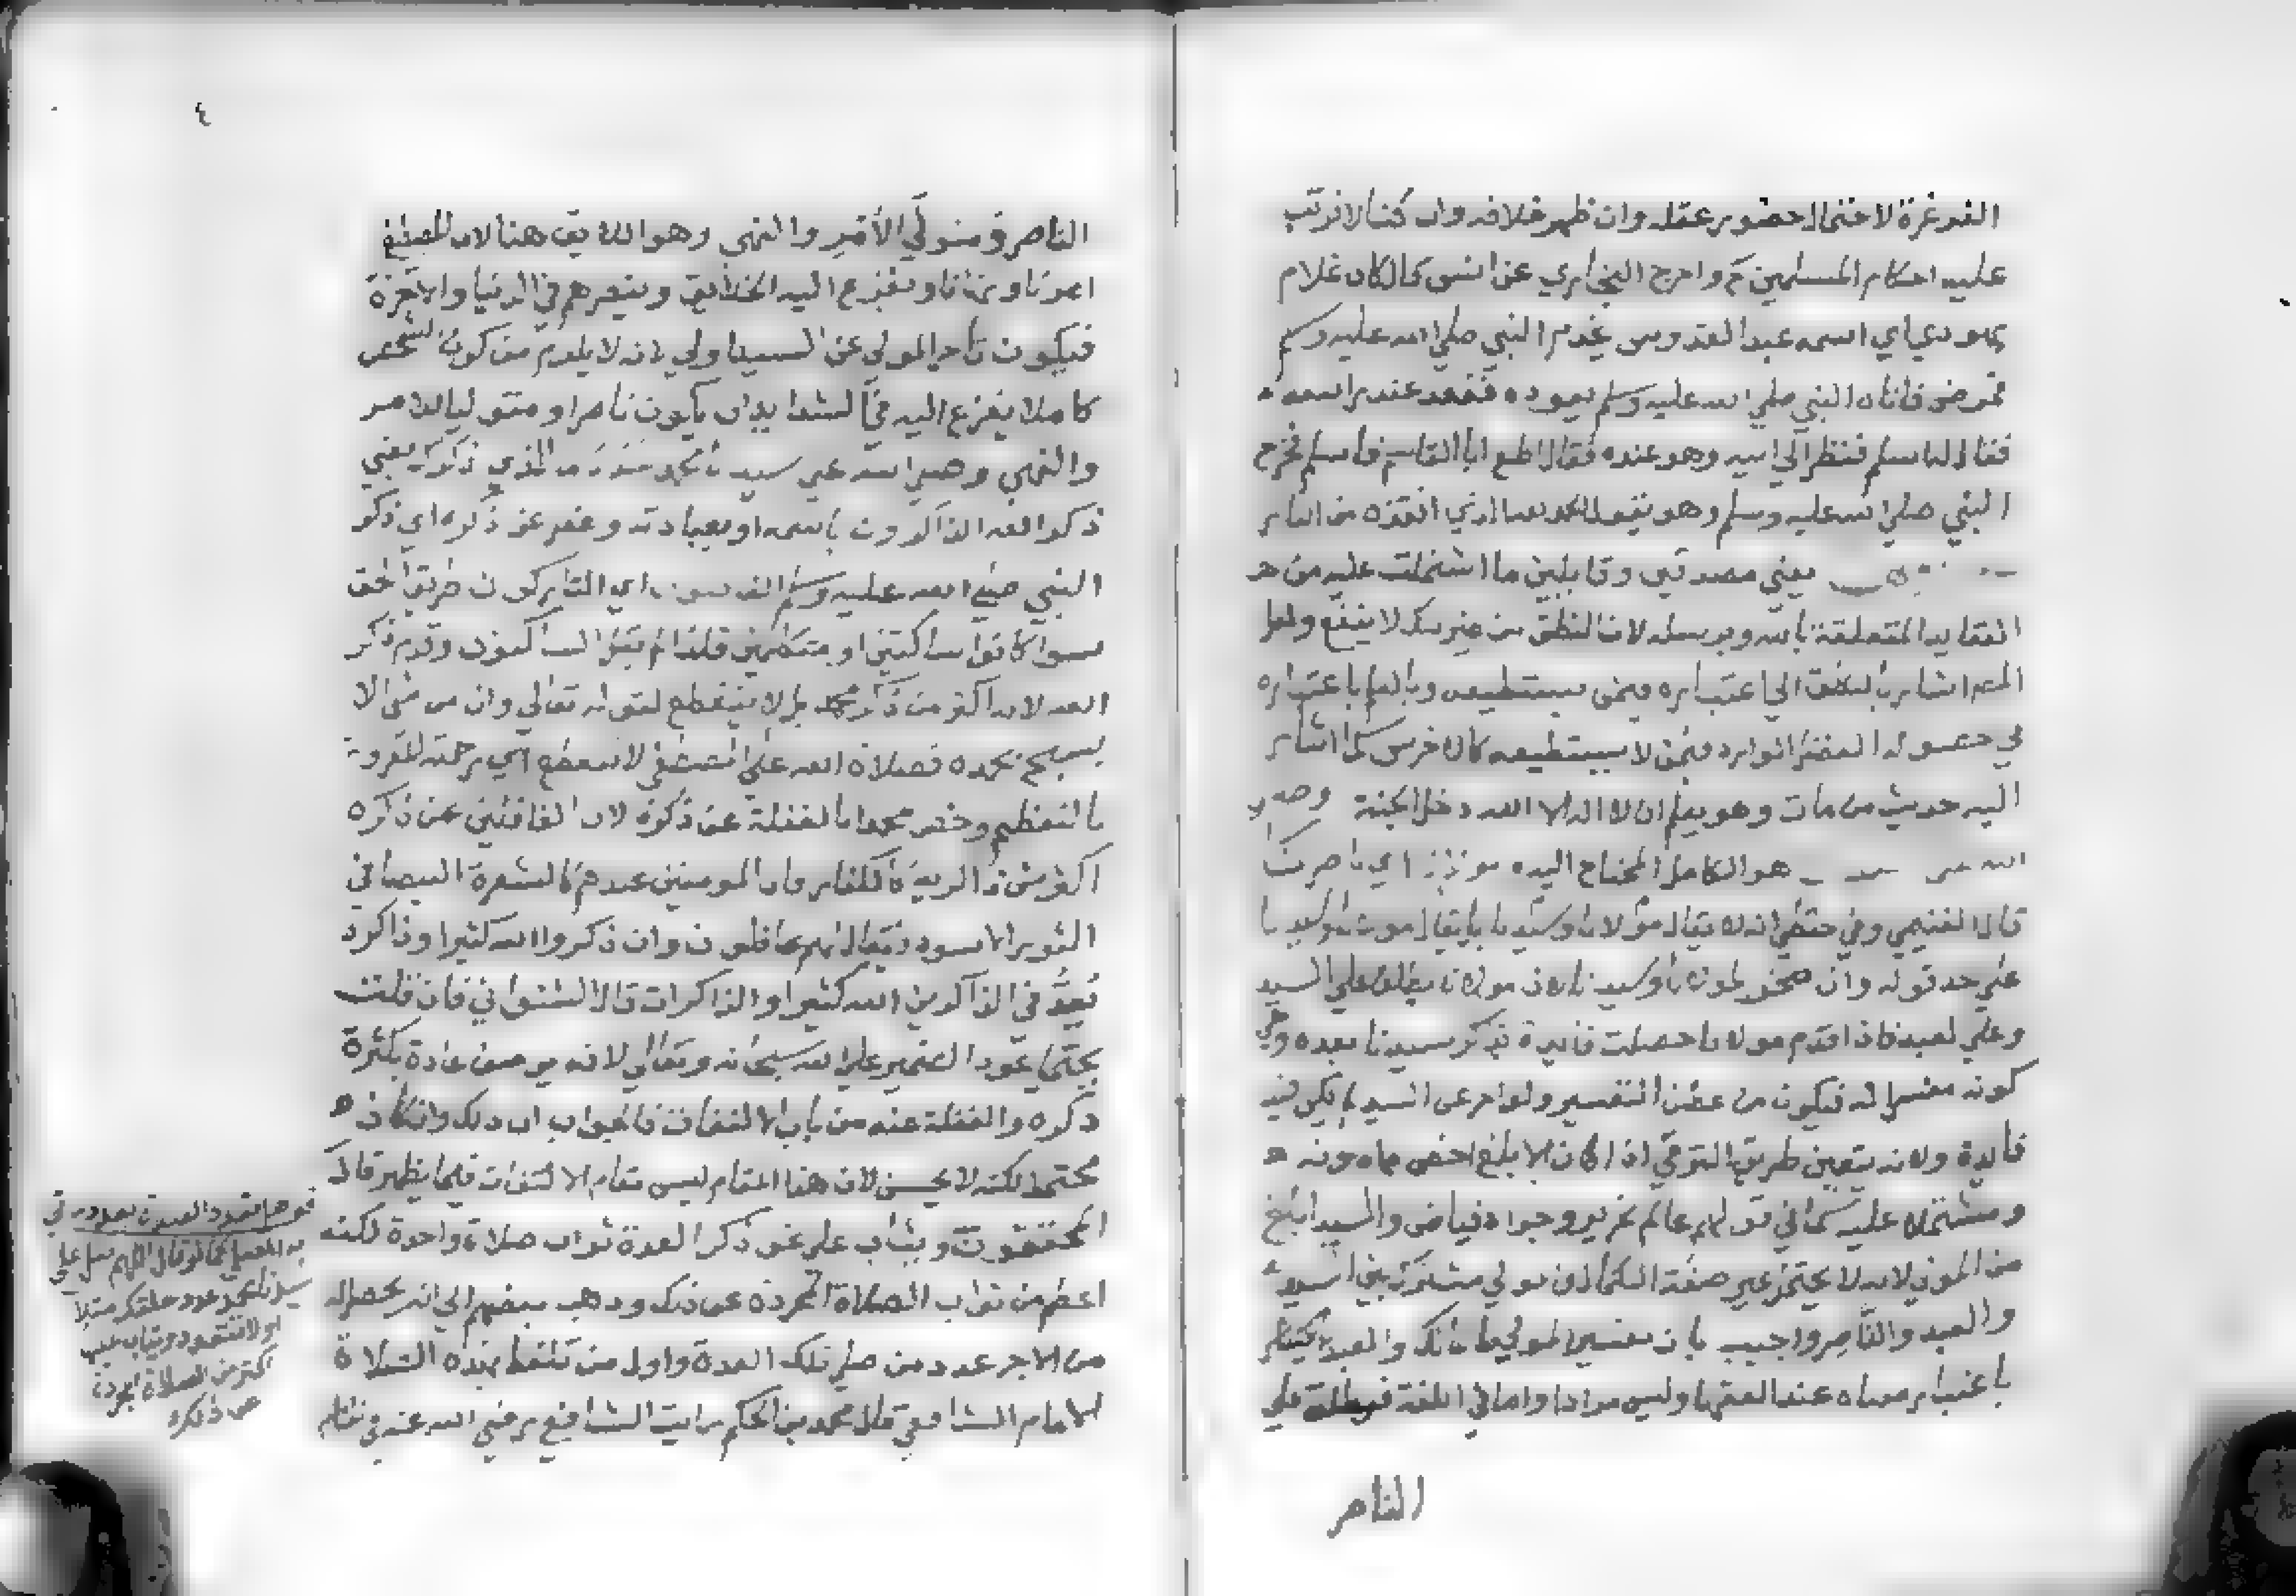 الغرغرة لاحتمال حضور عقله وان ظهر خلافه وان كنا لا نرتب
عليه احكام المسلمين واخرج البخاري عن انس قال كان غلام
يهودي اي اسمه عبد القدوس يخدم النبي صلي الله عليه وسلم
فمرض فاتاه النبي صلي الله عليه وسلم يعوده فقعد عند راسه
فقال له اسلم فنظر الي ابيه وهو عنده فقال اطع ابا القاسم فاسلم فخرج
النبي صلي الله عليه وسلم وهو يقول الحمد لله الذي انقذه من النار
يعني مصدقين وقابلين ما اشتملت عليه من
العقايد المتعلقة بالله وبرسله لان النطق من غير ذلك لا ينفع ولعل
المص اشار بالنطق الي اعتباره فيمن يستطيعه وبالعلم باعتباره
في حصول الفضل الوارد فيمن لا يستطيعه كالاخرس كما اشار
اليه حديث من مات وهو يعلم ان لا اله الا الله دخل الجنة وصلي
الله هو الكامل المحتاج اليه اي ناصرنا
قال الغنيمي وفي حفظي انه لا يقال مولانا وسيدنا بل يقال
علي حد قوله وان مولانا يطلق علي السيد
وعلي العبد فاذا قدم مولانا حصلت فايدة بذكر سيدنا بعده وهي
كونه مفسرا له فيكون من عطف التفسير ولو اخر عن السيد لم يكن فيه
فايدة ولانه يتعين طريق الترقي اذا كان الابلغ اخص مما دونه
ومشتملا عليه كما في قولهم عالم نحرير وجواد فياض والسيد ابلغ
من المولي لانه لا يحتمل غير صفة الكمال لان مولي مشترك بين السيد
والعبد والناصر واجيب بان تفسير المولي بالمالك والعبد
باعتبار معناه عند الفقها وليس مرادا واما في اللغة فيطلق علي
الناصر
٤
الناصر ومتولي الامر والنهي وهو اللايق هنا لان المصطفي
فيكون تاخير المولي عن السيد اولي لانه لا يلزم من كون الشخص
كاملا يفزع اليه في الشدايد ان يكون ناصرا ومتوليا للامر
والنهي وصلي الله علي سيدنا محمد الذي ذكره يعني
ذكر الله الذاكرون باسمه او بعبادته وغفل عن ذكره اي ذكر
النبي صلي الله عليه وسلم الغافلون اي التاركون طريق الحق
سوا كانوا ساكتين او متكلمين فلذا لم يقل الساكتون وقدم ذكر
الله لانه اكثر من ذكر محمد بل لا ينقطع لقوله تعالي وان من شي الا
يسبح بحمده فصلاة الله علي المصطفي لا تنقطع اي رحمته المقرونة
بالتعظيم وخص محمدا بالغفلة عن ذكره لان الغافلين عن ذكره
اكثر من كالكفار فان المومنين عندهم كالشعرة البيضا في
الثور الاسود غافلون وان ذكروا الله كثيرا وذاكره
يعد في الذاكرين الله كثيرا والذاكرات قال الشنواني فان قلت
يحتمل عود الضمير علي الله سبحانه وتعالي لانه يوصف عادة بكثرة
ذكره والغفلة عنه من باب الالتفات فالجواب ان ذلك وان كان
محتملا لكنه لا يحسن لان هذا المقام ليس مقام الالتفات فيما يظهر قال
المحققون ويثاب علي نحو ذكر العدة ثواب صلاة واحدة لكنه
اعظم من ثواب الصلاة المجردة عن ذلك وذهب بعضهم الي انه يحصل له
من الاجر عدد من صلي تلك العدة واول من تلفظ بهذه الصلاة
الامام الشافعي قال محمد بن الحكم رايت الشافعي رضي الله عنه في منام
به المصلي كما لو قال اللهم صل علي
سيدنا محمد عدد خلقك مثلا
اولا تتعدد ويثاب عليه
اكثر من الصلاة المجردة
عن ذلك